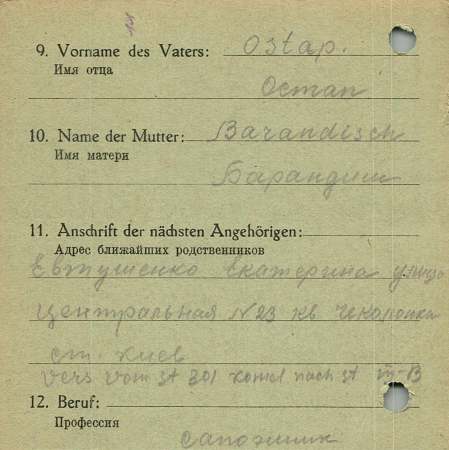 9. Vorname des Vaters: Ostap.
Имя отца
Остап
10. Name der Mutter: Barandisch
Имя матери
Барандиш
11. Anschrift der nächsten Angehörigen:
Адрес ближайших родственников
Евтушенко Екатерина улица
Центральная №23 кв
ст. Киев
vers vom St 301 nach St
12. Beruf:
Профессия
сапожник